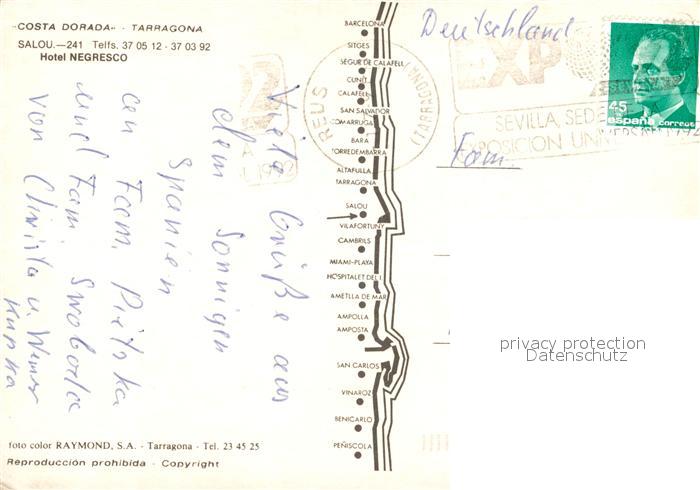 "COSTA DORADA" - TARRAGONA
SALOU.—241 Telfs. 37 05 12 - 37 03 92
Hotel NEGRESCO
Viele Grüße aus
dem Sonnigen
Spanien
an Fam.
und Fam. Swoboda
von Christa u. Werner
foto color RAYMOND, S.A. - Tarragona - Tel. 23 45 25
Reproducción prohibida - Copyright
BARCELONA
SITGES
SEGUR DE CALAFELL
CUNIT
CALAFELL
SAN SALVADOR
COMARRUGA
BARA
TORREDEMBARRA
ALTAFULLA
TARRAGONA
SALOU
VILAFORTUNY
CAMBRILS
MIAMI-PLAYA
HOSPITALET DEL I.
AMETLLA DE MAR
AMPOLLA
AMPOSTA
SAN CARLOS
VINAROZ
BENICARLO
PEÑISCOLA
REUS
(TARRAGONA)
Deutschland
EXPO
SEVILLA, SEDE
EXPOSICION UNIVERSAL 1992
45
españa correos
Fam.
privacy protection
Datenschutz